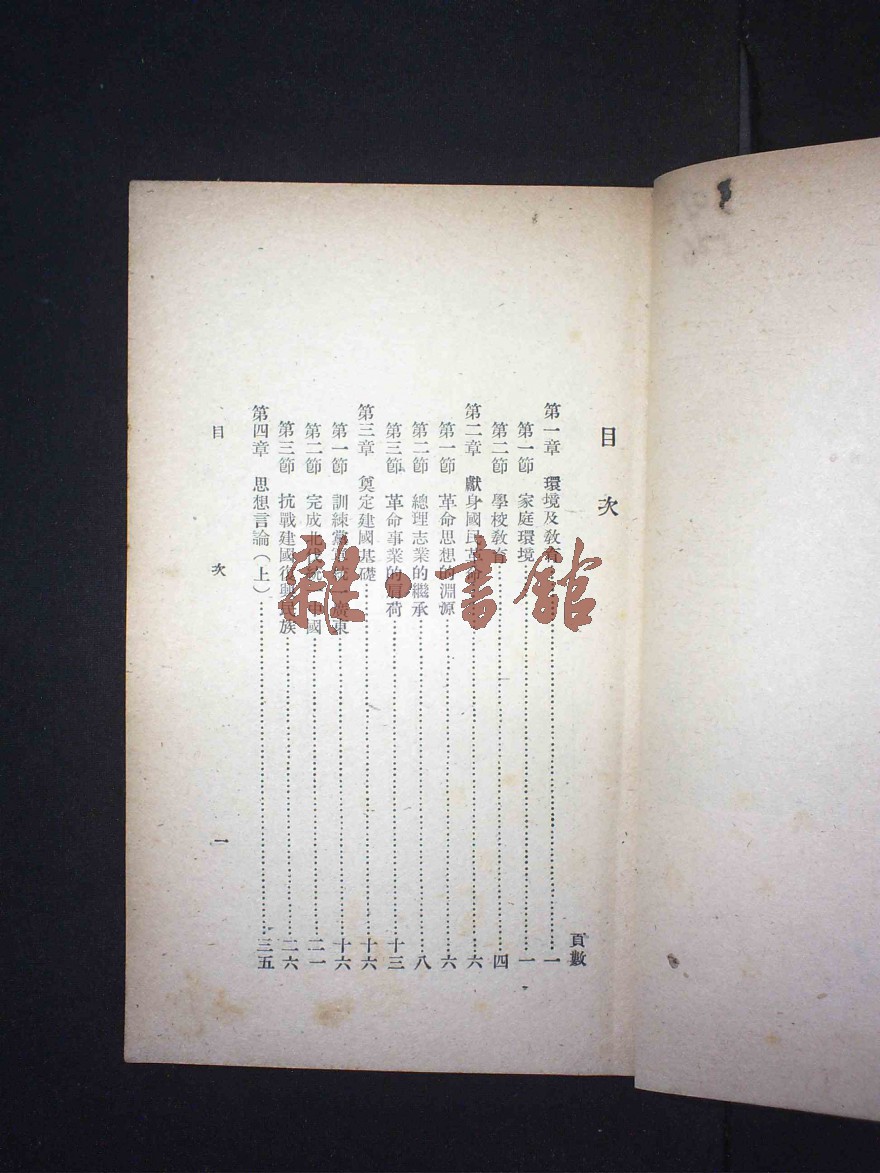 目次
頁數
第一章 環境及教育……一
第一節 家庭環境……一
第二節 學校教育……四
第二章 獻身國民革命……六
第一節 革命思想的淵源……六
第二節 總理志業的繼承……八
第三節 革命事業的肩荷……十三
第三章 奠定建國基礎……十六
第一節 訓練黨軍統一廣東……十六
第二節 完成北伐統一中國……二一
第三節 抗戰建國復興民族……二六
第四章 思想言論（上）……三五
目次
一
雜·書館